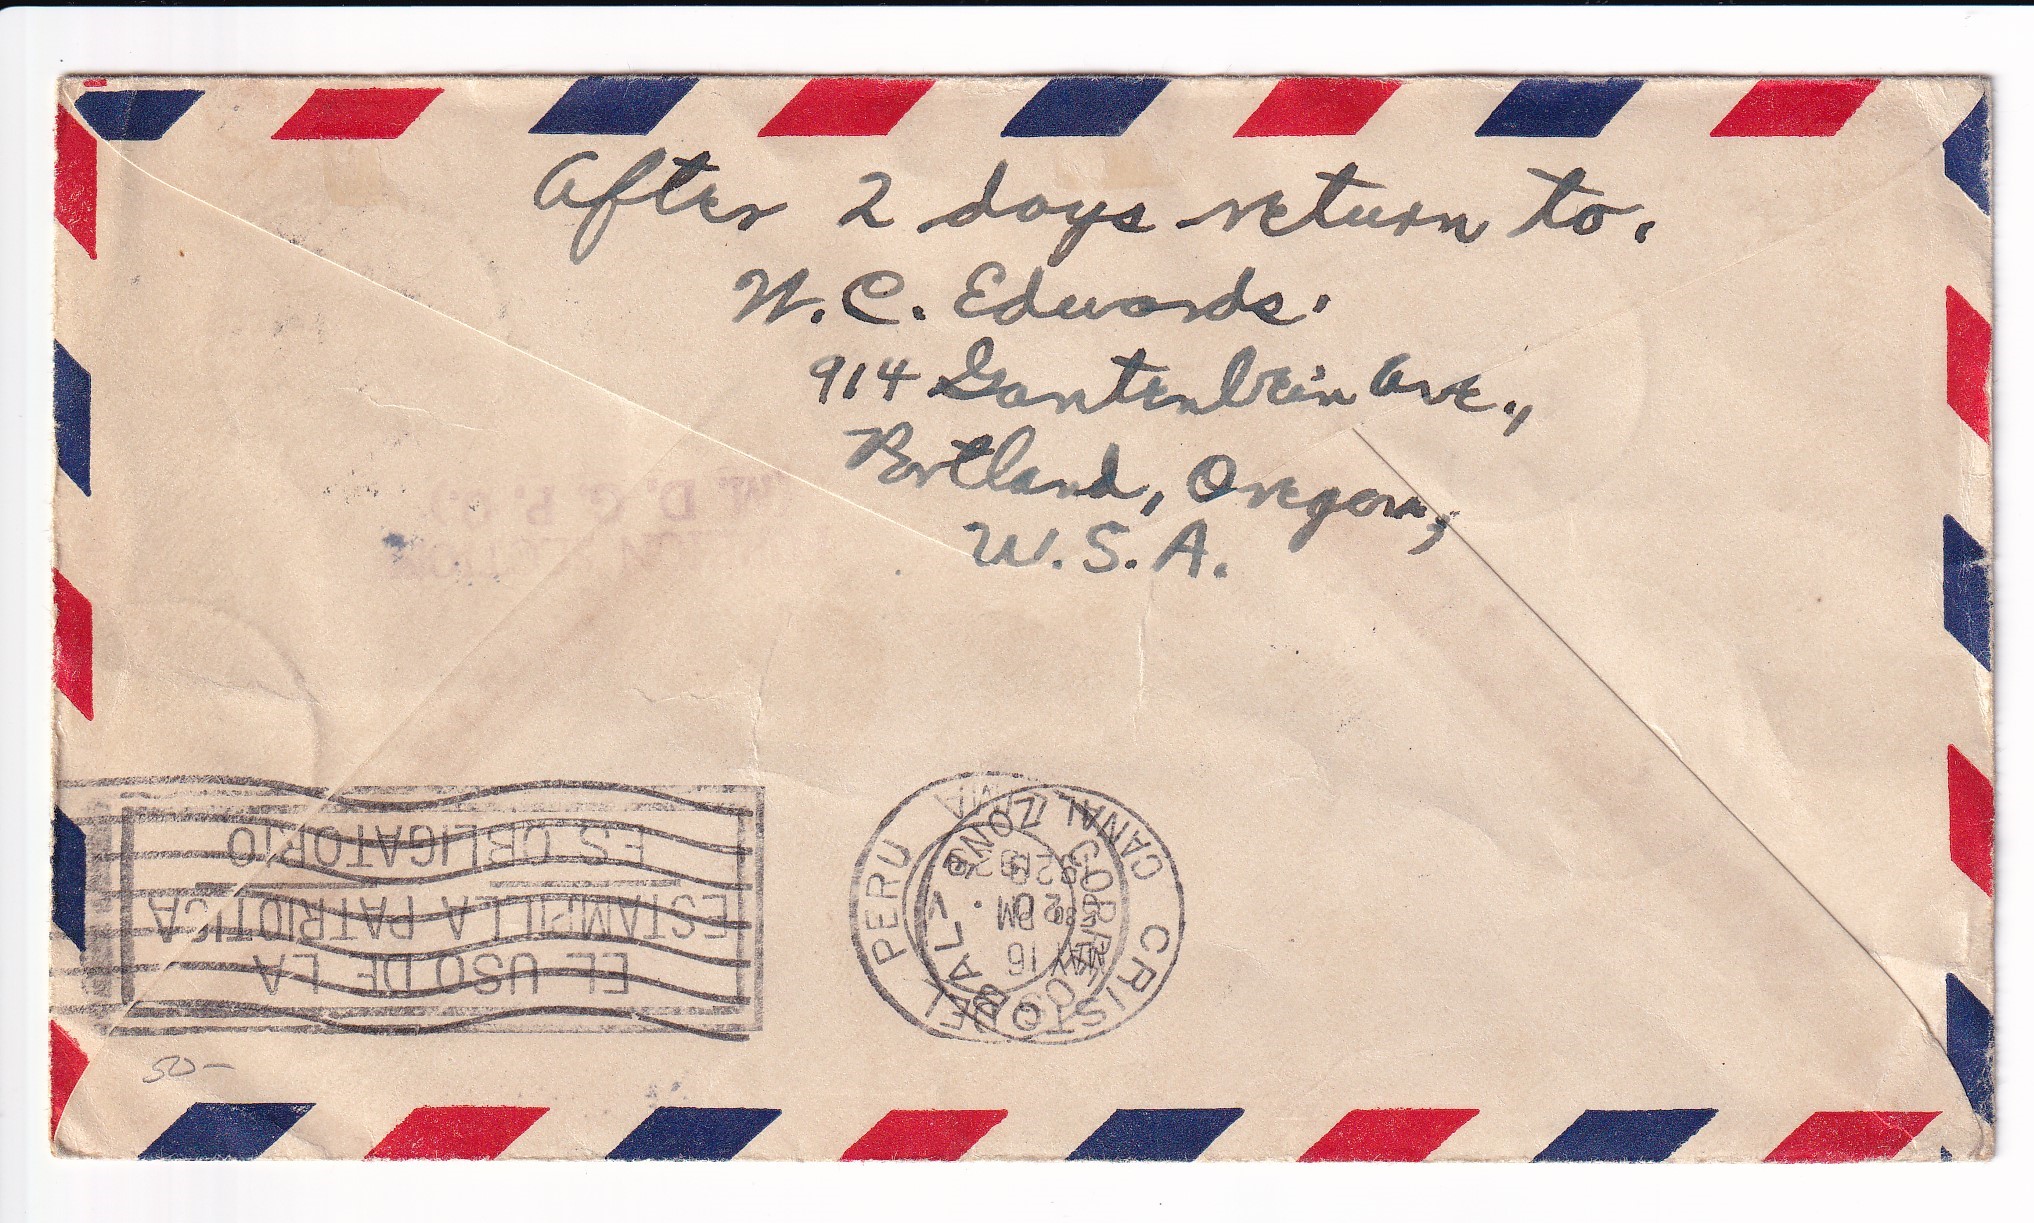 After 2 days return to.
W. C. Edwards.
914 Gantenbein Ave.,
Portland, Oregon,
U.S.A.
D. G. P. O.)
EL USO DE LA
ESTAMPILLA PATRIOTICA
ES OBLIGATORIO
CRISTOBAL
CANAL ZONE
MAY 16
2 PM
PERU
50-